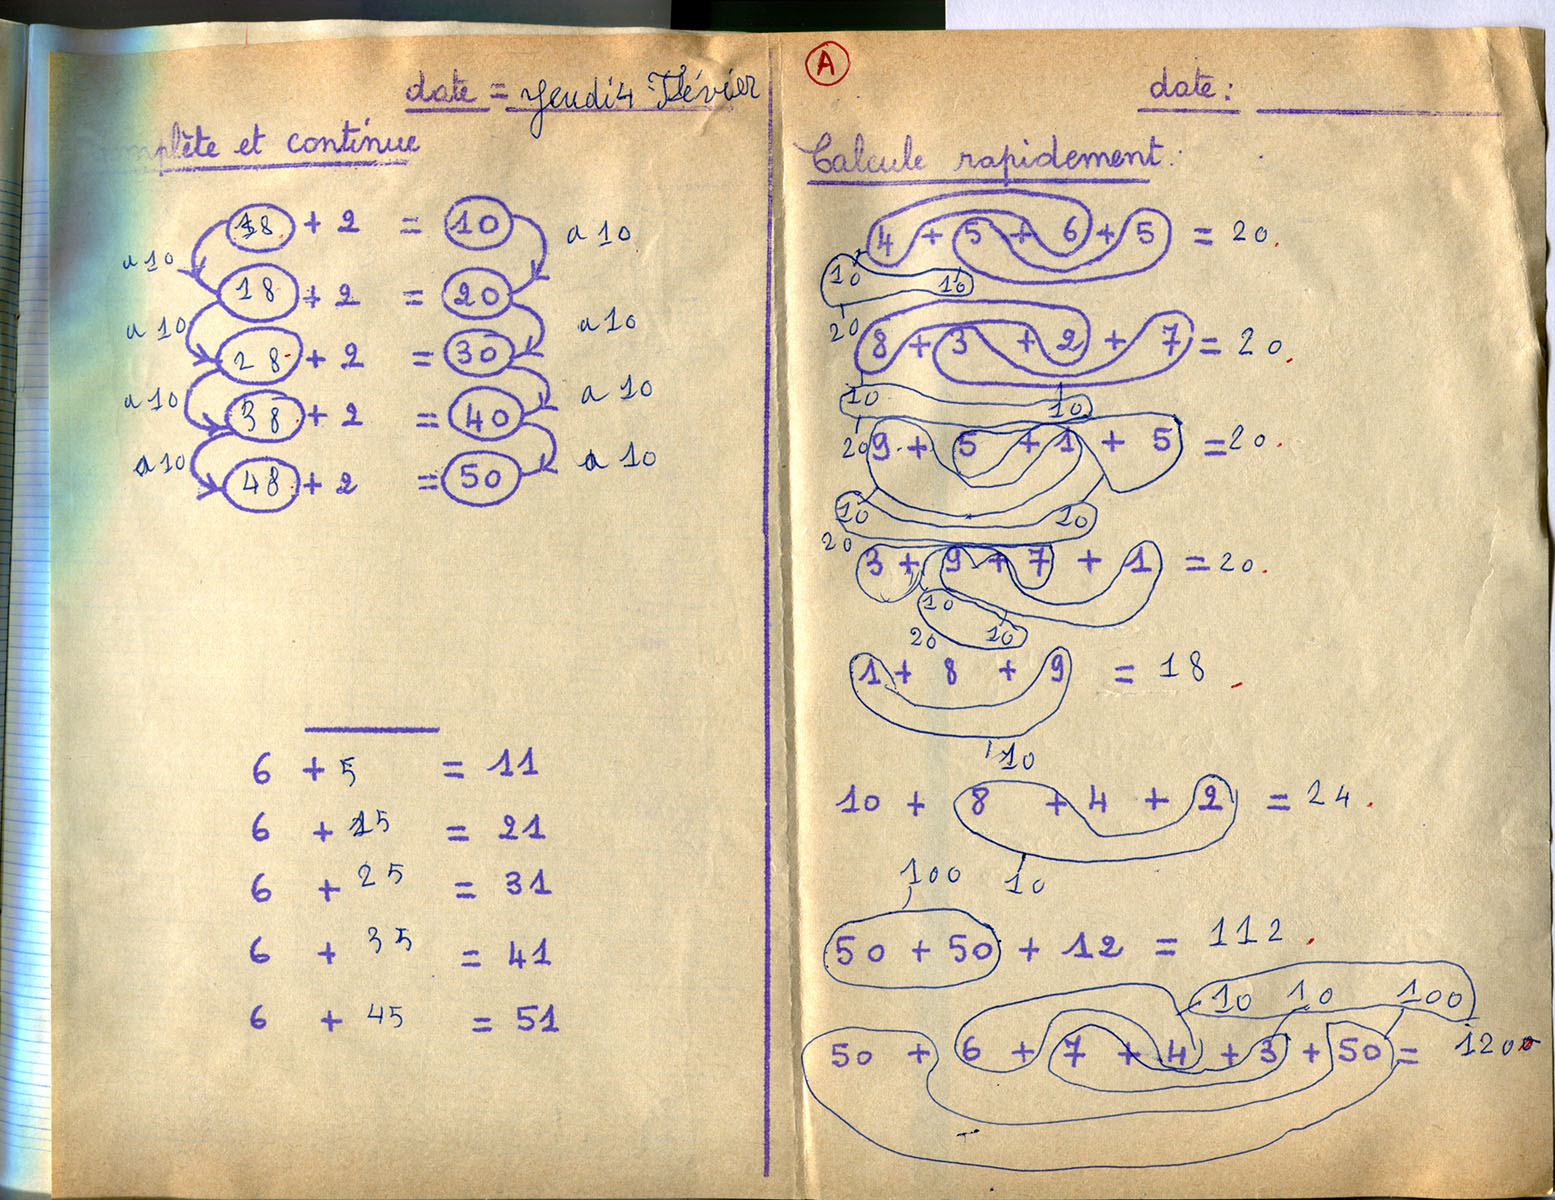 date = Jeudi 4 Février
mplète et continue
18 + 2 = 10
a 10 a 10
18 + 2 = 20
a 10 a 10
28 + 2 = 30
a 10 a 10
38 + 2 = 40
a 10 a 10
48 + 2 = 50
6 + 5 = 11
6 + 15 = 21
6 + 25 = 31
6 + 35 = 41
6 + 45 = 51
A
date :
Calcule rapidement :
4 + 5 + 6 + 5 = 20
10 10
20
8 + 3 + 2 + 7 = 20
10 10
20
9 + 5 + 1 + 5 = 20
10 10
20
3 + 9 + 7 + 1 = 20
10
20 10
1 + 8 + 9 = 18
10
10 + 8 + 4 + 2 = 24
100 10
50 + 50 + 12 = 112
10 10 100
50 + 6 + 7 + 4 + 3 + 50 = 1200